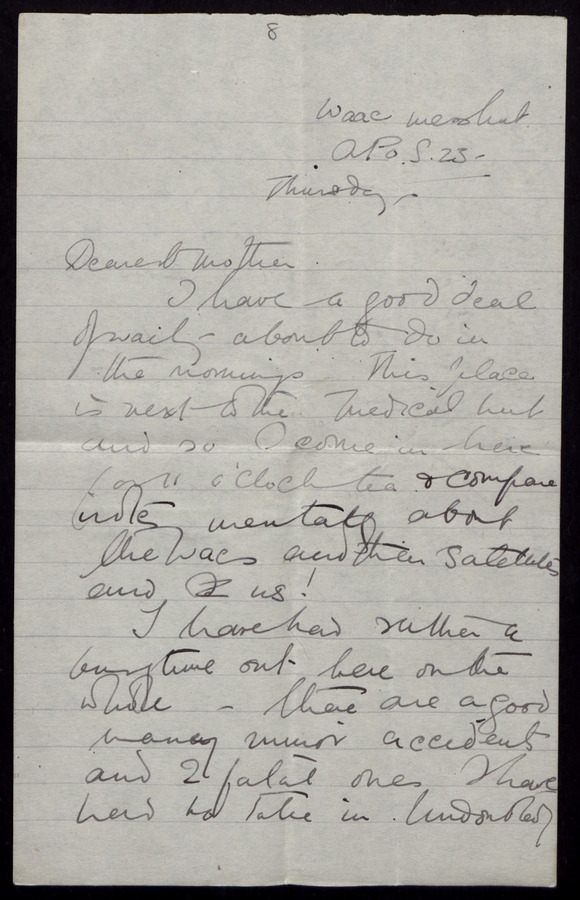 8
Waac mess hut
A.P.O. S. 23 -
Thursday -
Dearest Mother.
I have a good deal
of waiting about to do in
the mornings. This place
is next to the Medical hut
and so I come in here
for 11 o'clock tea & compare
notes mentally about
the Waacs and their satellites
and us!
I have had rather a
busy time out here on the
whole - there are a good
many minor accidents
and 2 fatal ones I have
had to take in. Undoubtedly